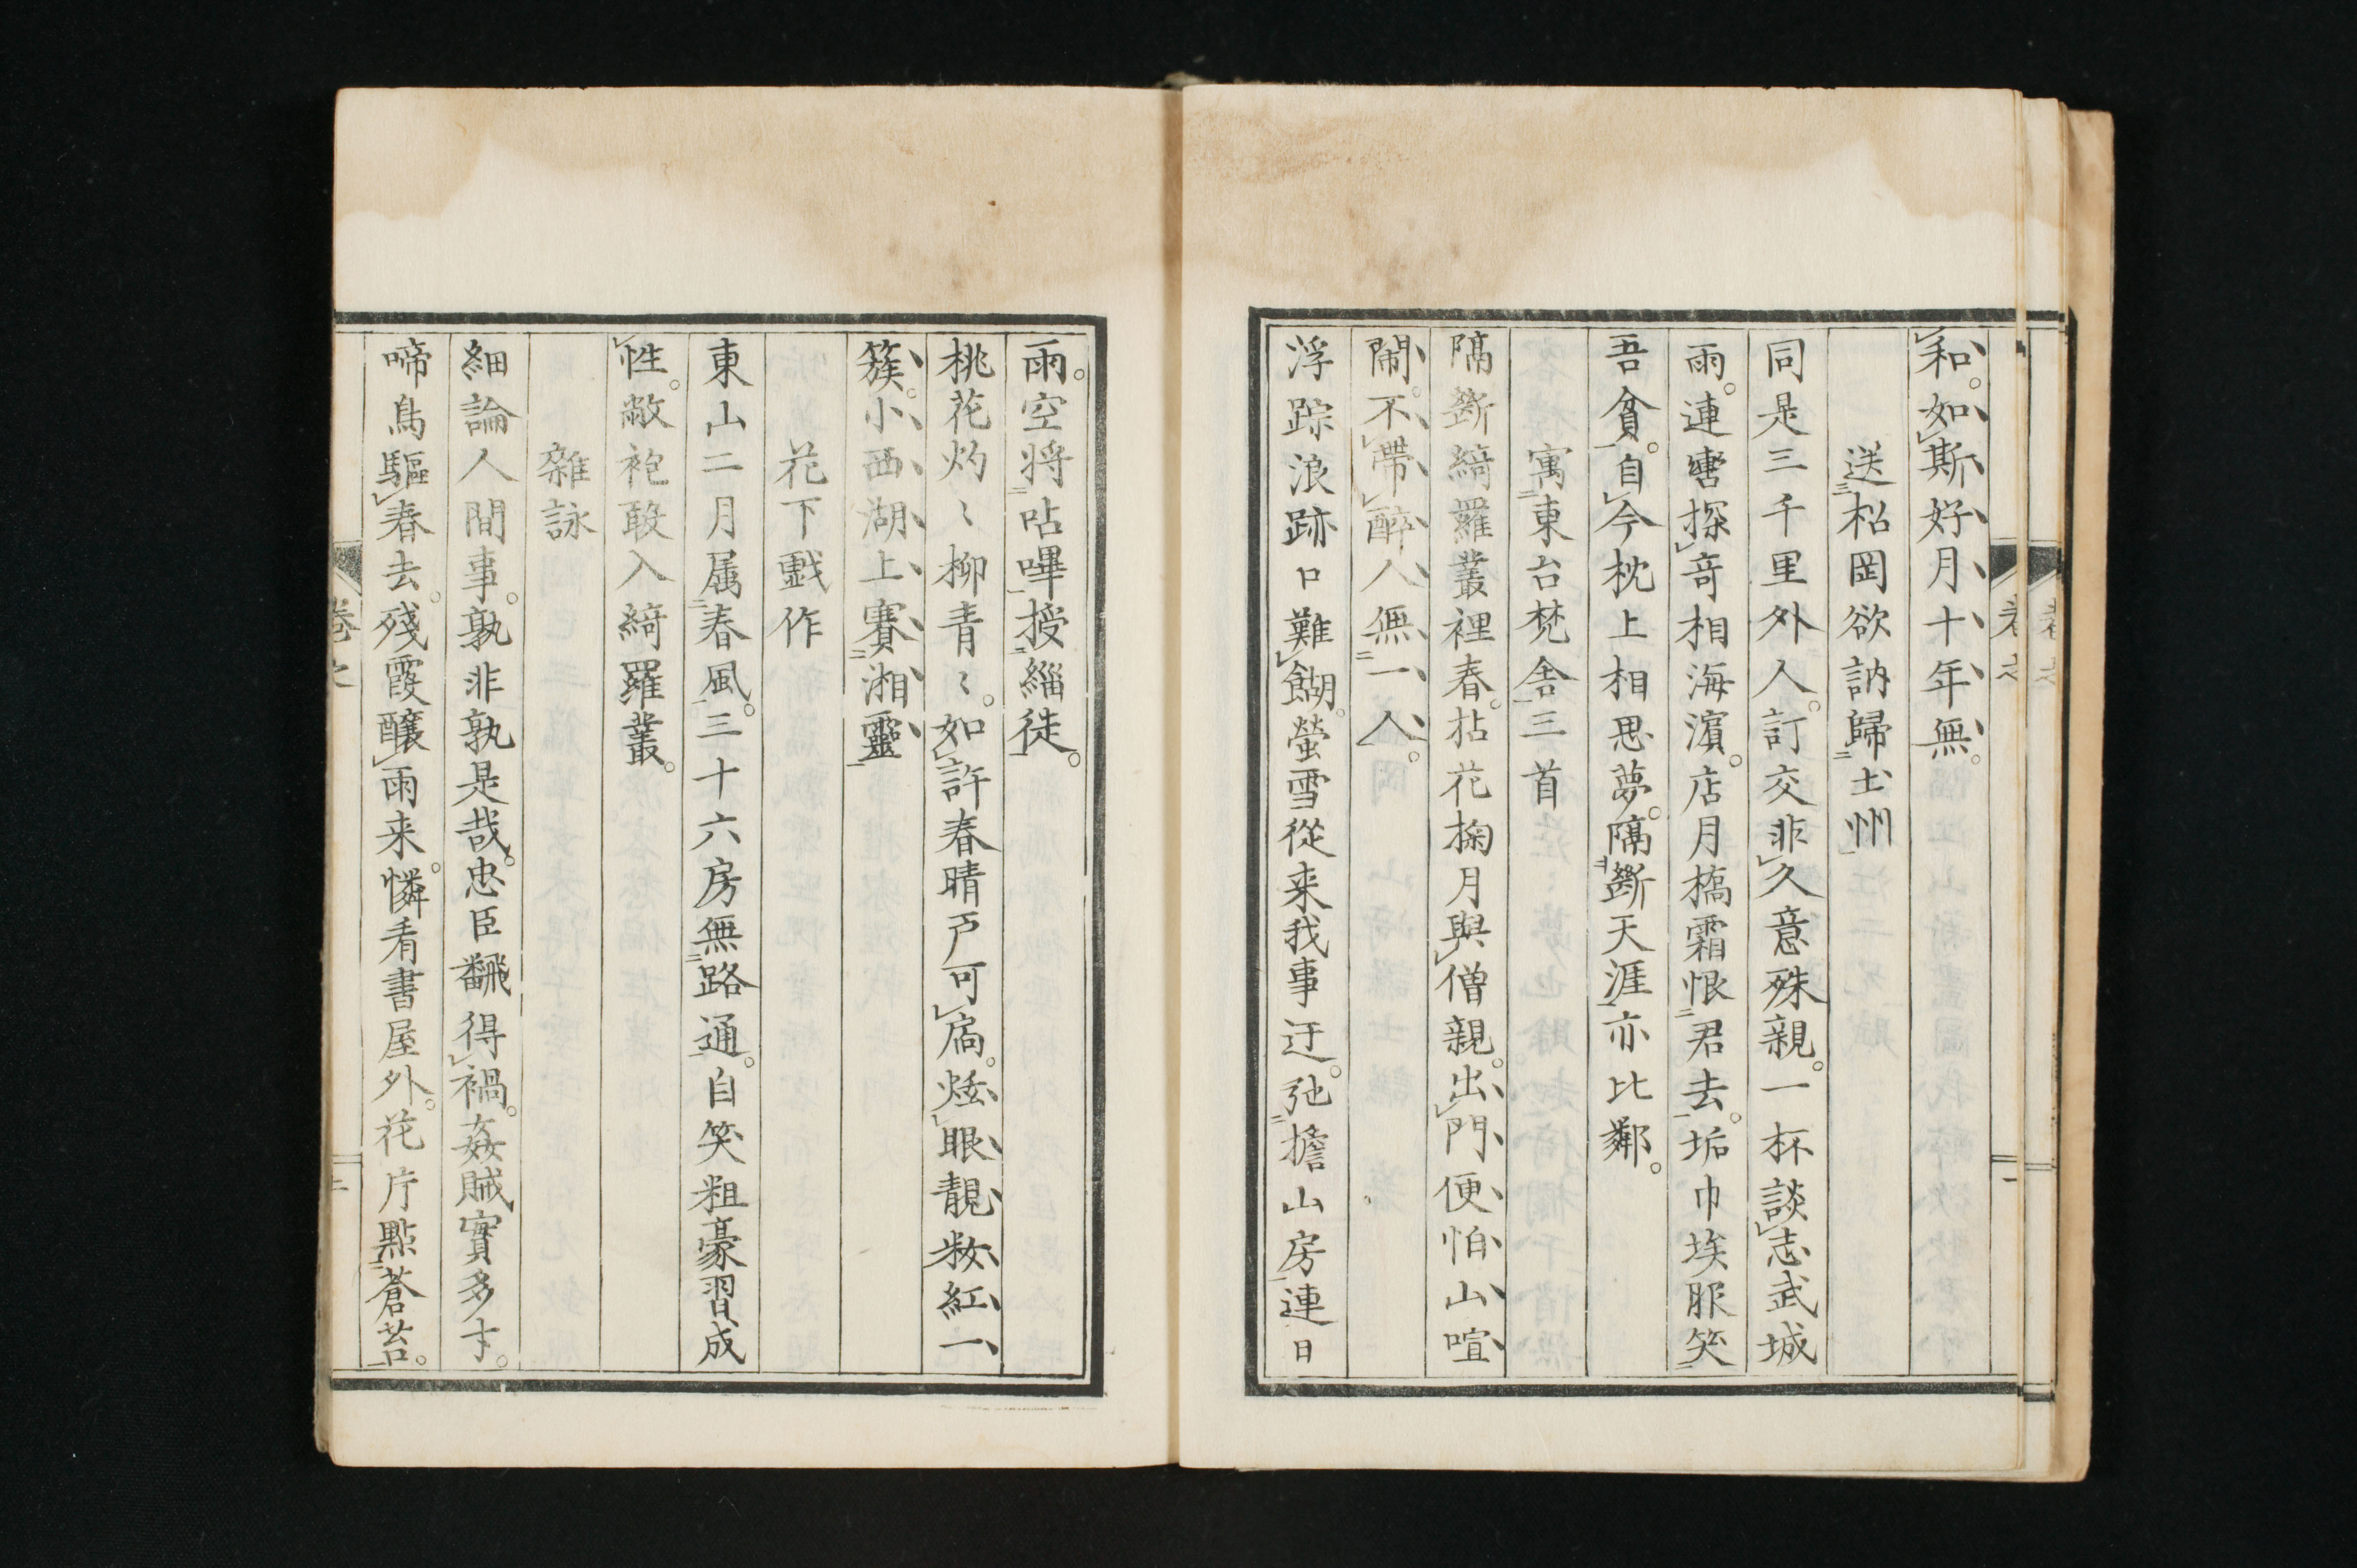 和。如斯好月十年無。
送松岡欲訥歸土州
同是三千里外人。訂交非久意殊親。一杯談志武城
雨。連轡探奇相海濱。店月橋霜恨君去。垢巾埃服笑
吾貧。自今枕上相思夢。隔斷天涯亦比鄰。
寓東台梵舎三首
隔斷綺羅叢裡春。拈花掬月與僧親。出門便怕山喧
鬧。不帶醉人無一人。
浮踪浪跡口難餬。螢雪從来我事迂。弛擔山房連日
雨。空将呫嗶授緇徒。
桃花灼〻柳青〻。如許春晴戸可扃。炫眼靚粧紅一
簇。小西湖上賽湘靈
花下戯作
東山二月属春風。三十六房無路通。自笑粗豪習成
性。敝袍敢入綺羅叢。
雜詠
細論人間事。孰非孰是哉。忠臣飜得禍。姦賊實多才。
啼鳥驅春去。殘霞醸雨来。憐看書屋外。花片點蒼苔。